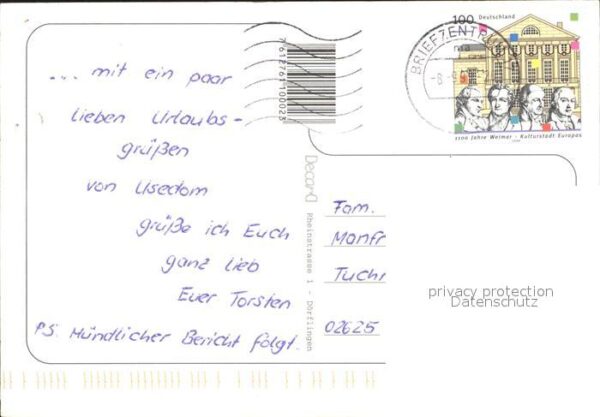 ... mit ein paar
lieben Urlaubs-
grüßen
von Usedom
grüße ich Euch
ganz lieb
Euer Torsten
P.S. Mündlicher Bericht folgt.
7612761100023
Decora
Rheinstrasse 1 - Dörflingen
100 Deutschland
BRIEFZENTRUM
1100 Jahre Weimar - Kulturstadt Europas
Fam.
Manfr
Tuchr
02625
privacy protection
Datenschutz